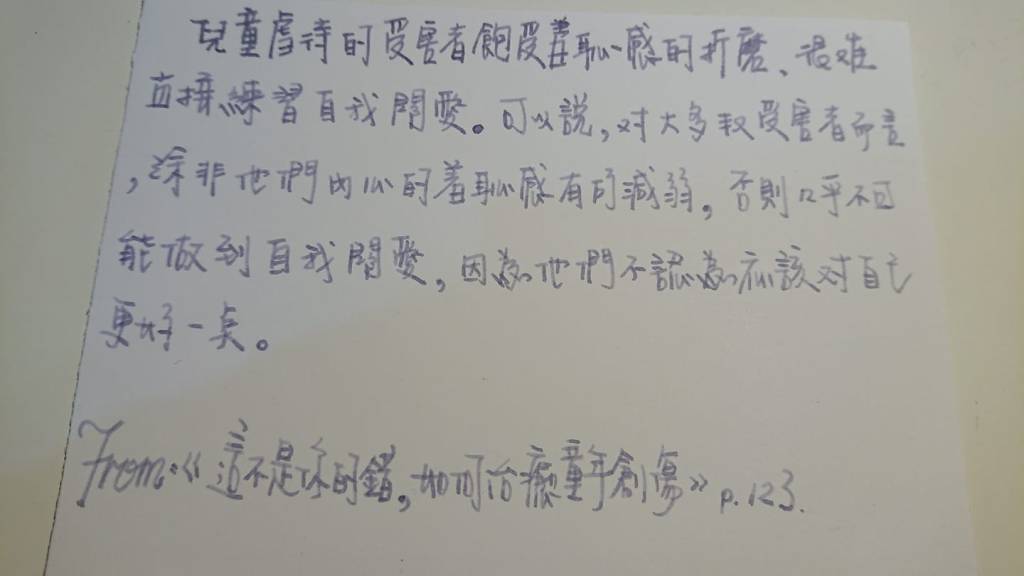 兒童虐待的受害者飽受羞恥感的折磨、很难
直接練習自我関愛。可以説，对大多数受害者而言
，除非他們内心的羞恥感有所減弱，否則几乎不可
能做到自我関愛，因為他們不認為应該对自己
更好一点。
From《這不是你的錯，如何治癒童年創傷》p.123.